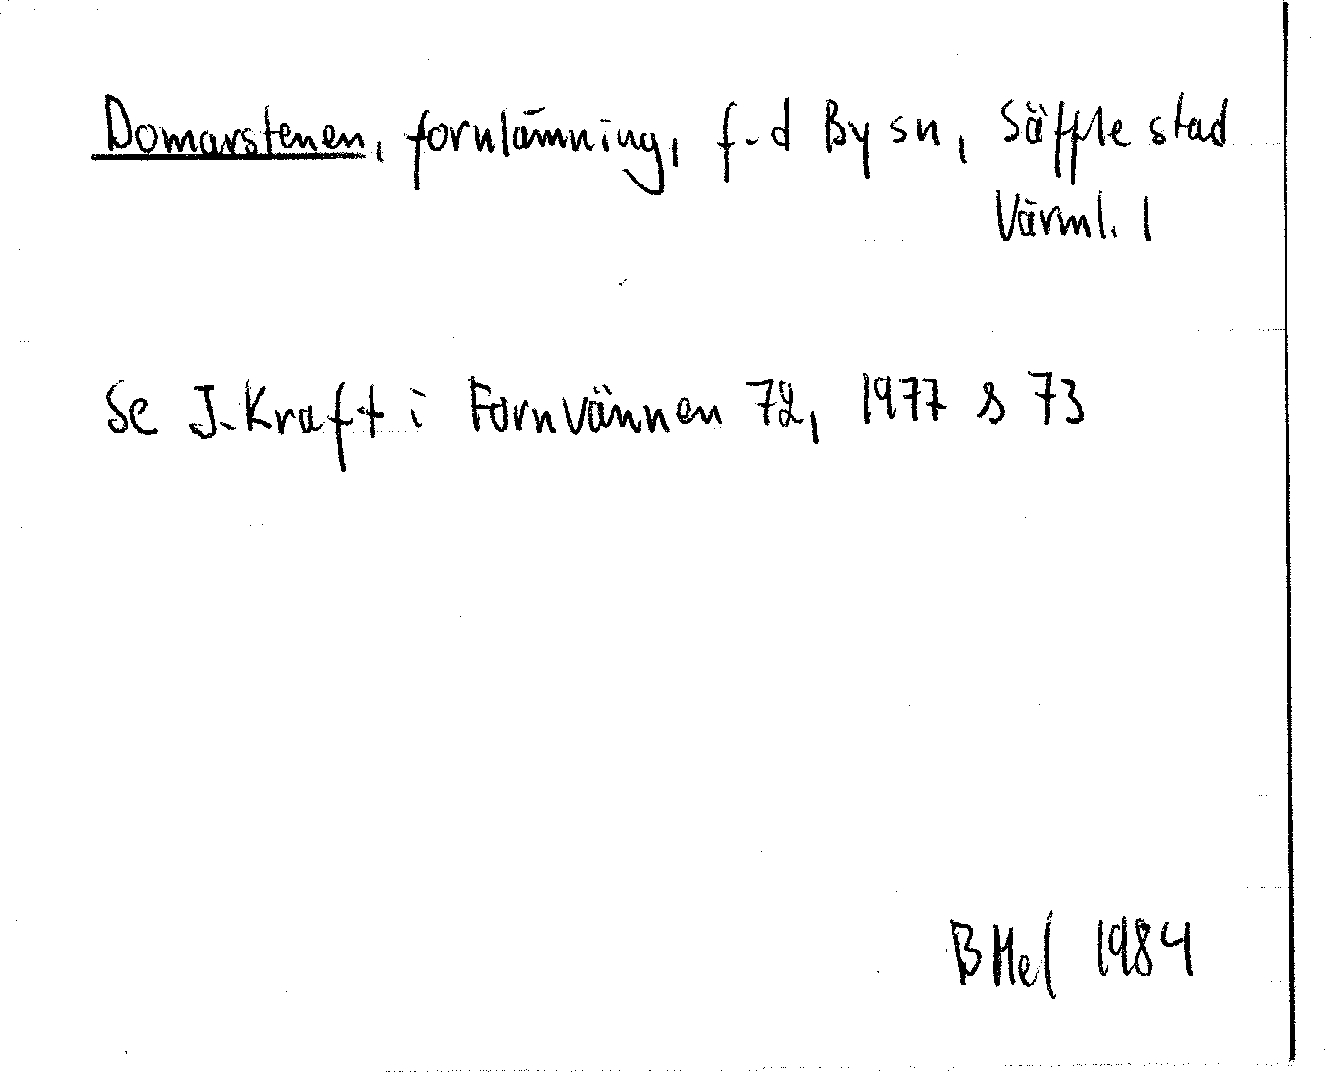 Domarstenen, fornlämning, f.d By sn, Säffle stad
Värml. l
Se J. Kraft i Fornvännen 72, 1977 s 73
B Hel 1984